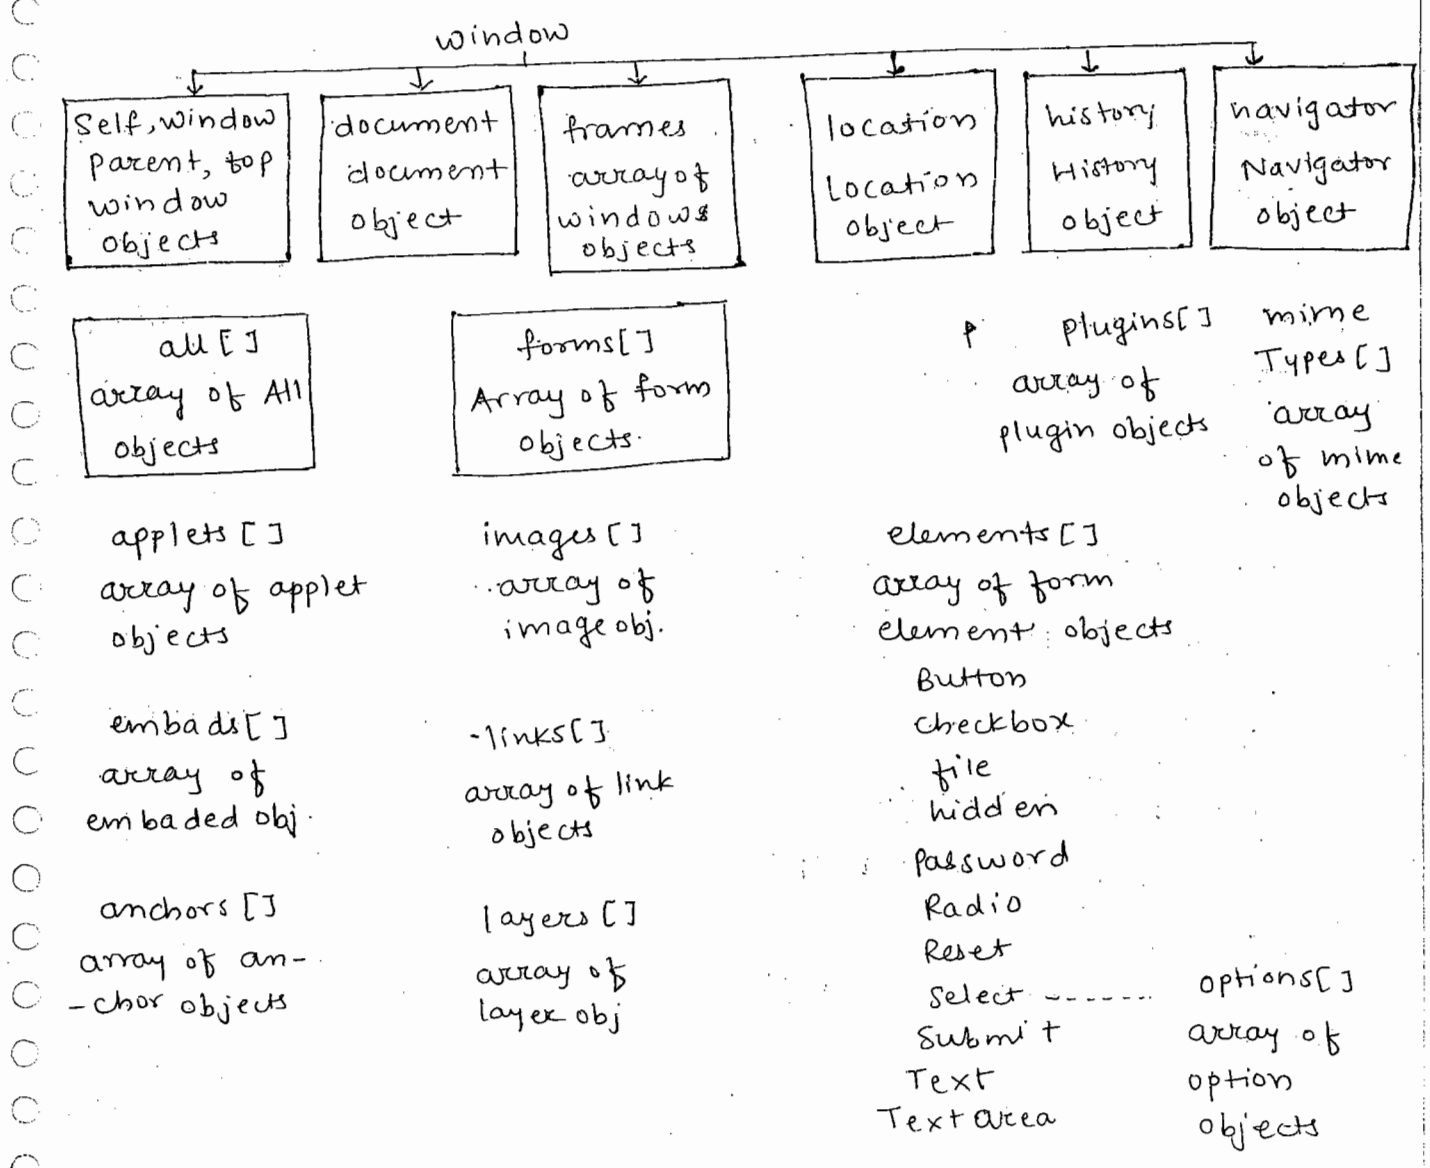 window
Self, window
Parent, top
window
objects
document
document
object
frames
array of
windows
objects
location
Location
object
history
History
object
navigator
Navigator
object
all [ ]
array of All
objects
forms[ ]
Array of form
objects.
plugins[ ]
array of
plugin objects
mime
Types[ ]
array
of mime
objects
applets [ ]
array of applet
objects
images [ ]
array of
image obj.
elements [ ]
array of form
element objects
Button
checkbox
file
hidden
Password
Radio
Reset
Select -------
Submit
Text
Textarea
options[ ]
array of
option
objects
embads[ ]
array of
embaded obj.
-links[ ]
array of link
objects
anchors [ ]
array of an-
-chor objects
layers [ ]
array of
layer obj